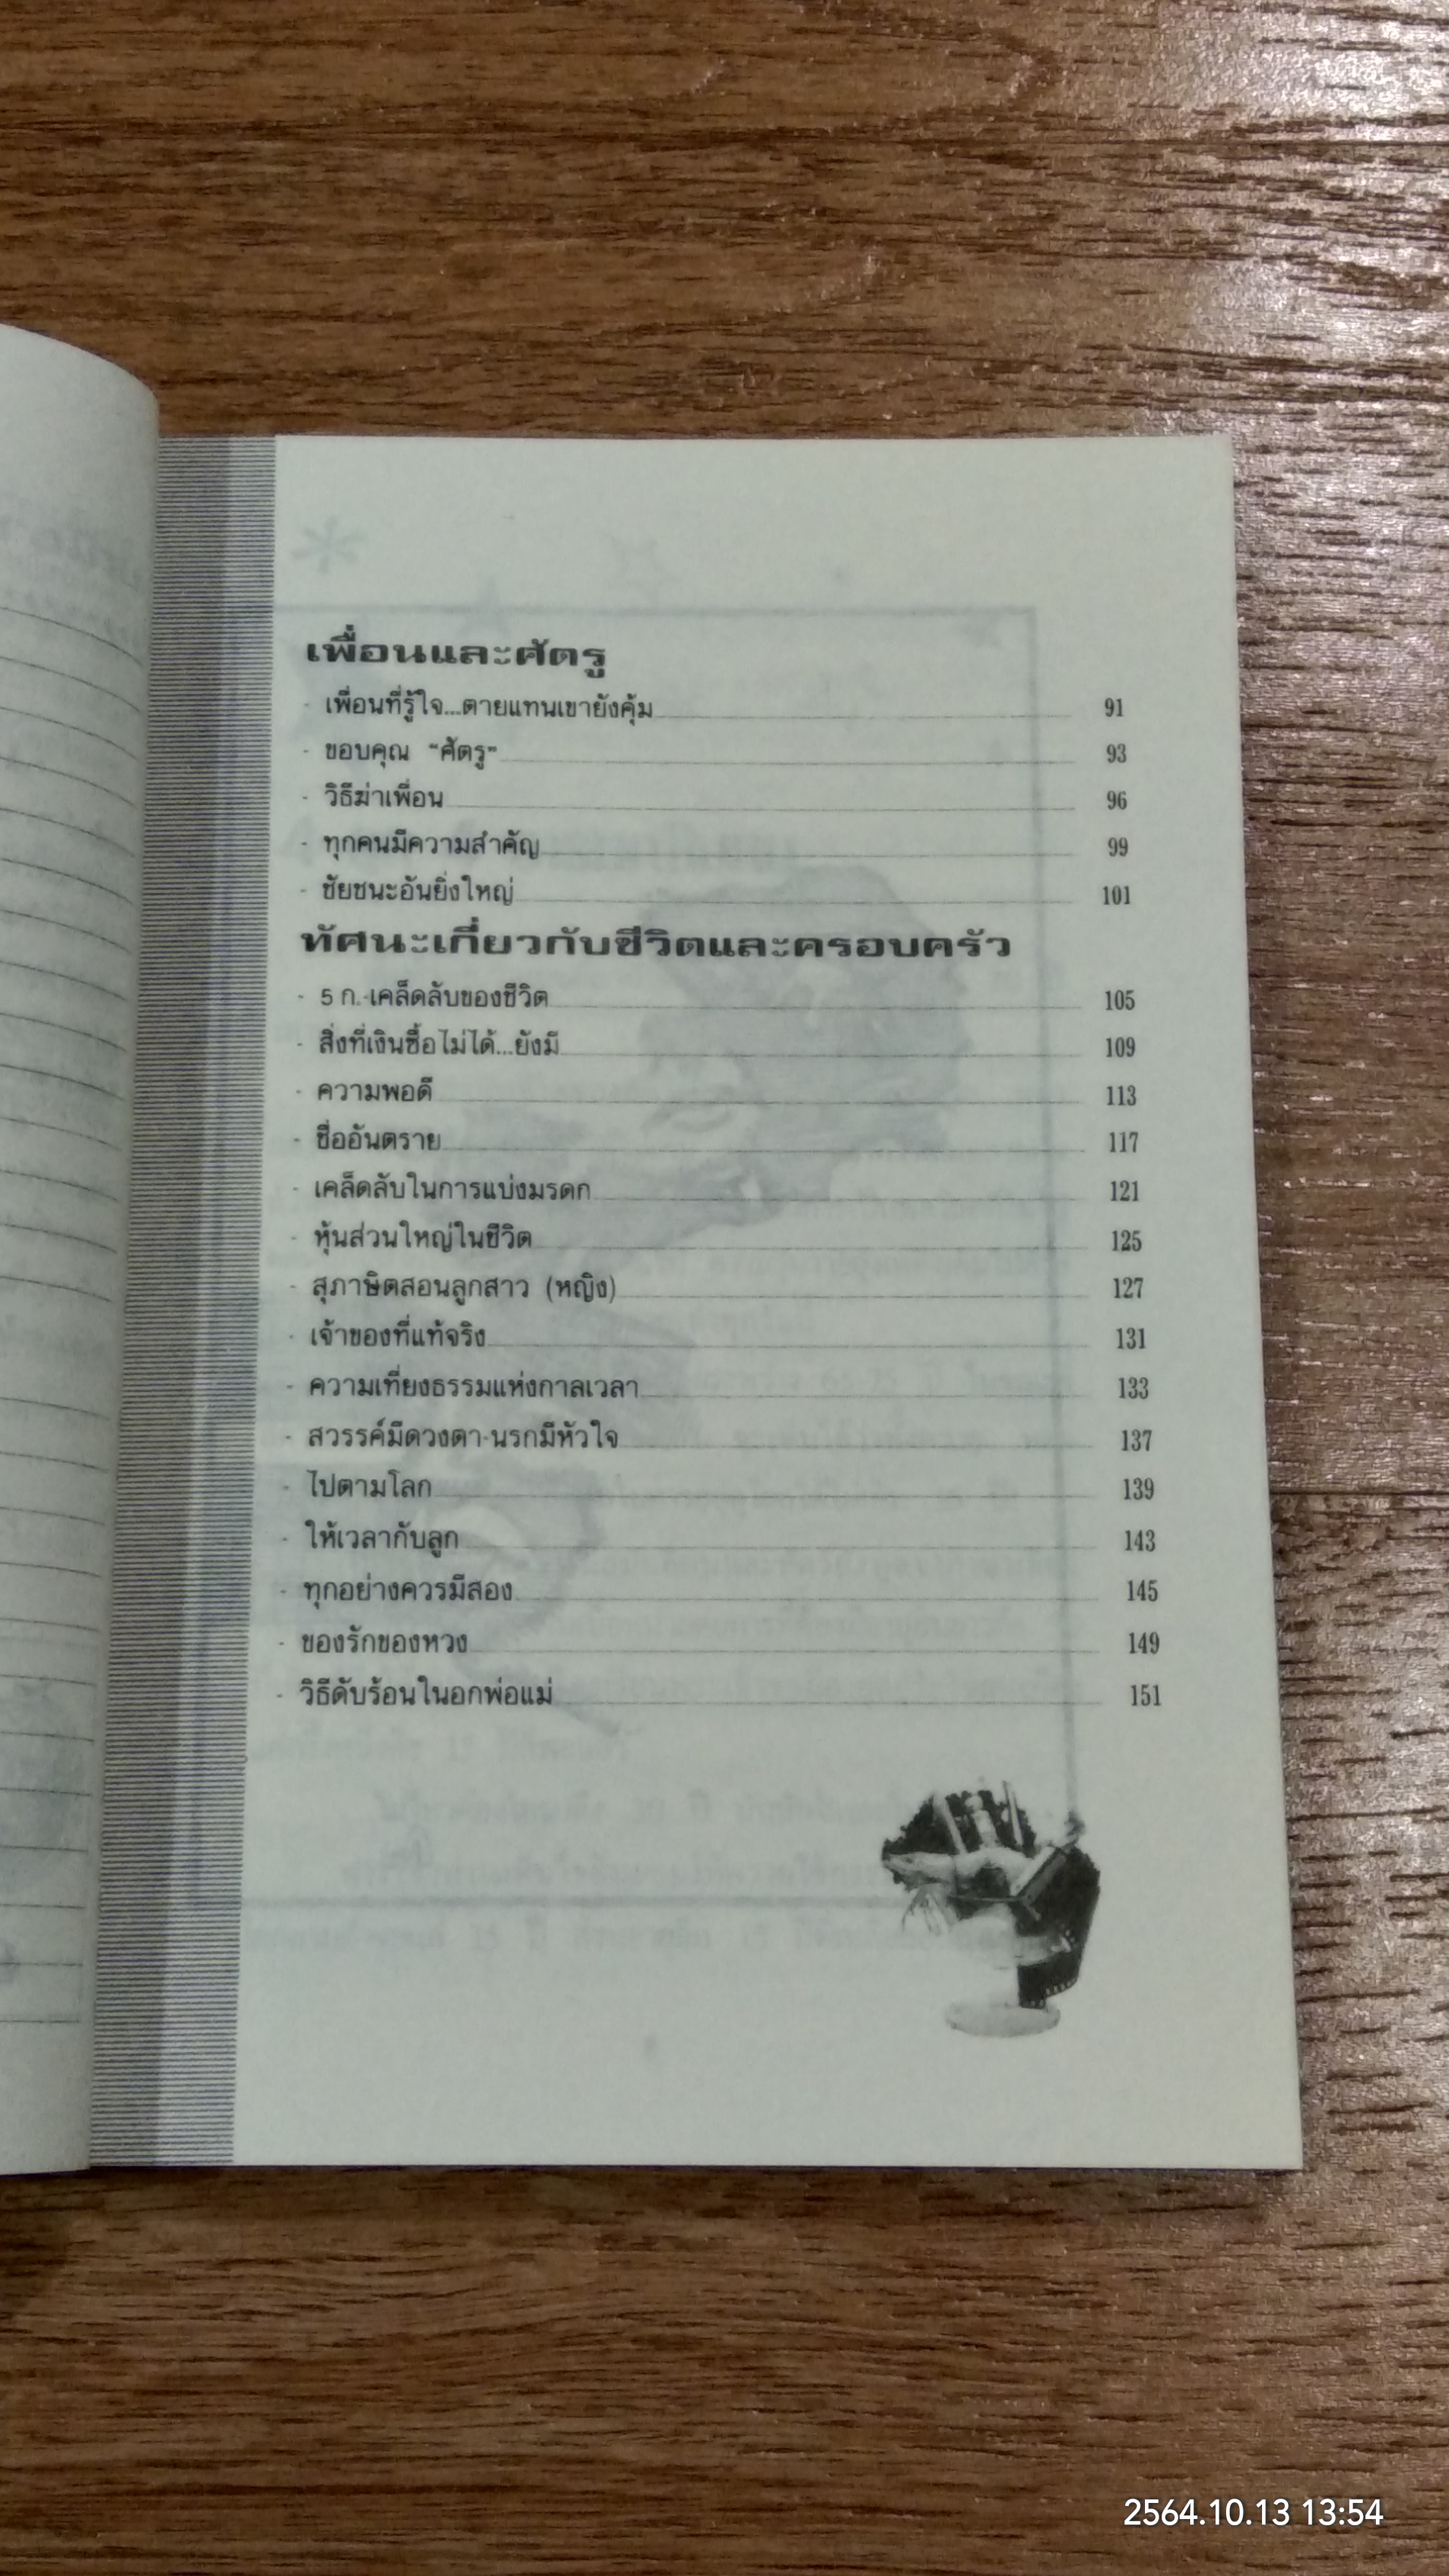 เพื่อนและศัตรู
- เพื่อนที่รู้ใจ...ตายแทนเขายังคุ้ม 91
- ขอบคุณ "ศัตรู" 93
- วิธีฆ่าเพื่อน 96
- ทุกคนมีความสำคัญ 99
- ชัยชนะอันยิ่งใหญ่ 101
ทัศนะเกี่ยวกับชีวิตและครอบครัว
- 5 ก.-เคล็ดลับของชีวิต 105
- สิ่งที่เงินซื้อไม่ได้...ยังมี 109
- ความพอดี 113
- ชื่ออันตราย 117
- เคล็ดลับในการแบ่งมรดก 121
- หุ้นส่วนใหญ่ในชีวิต 125
- สุภาษิตสอนลูกสาว (หญิง) 127
- เจ้าของที่แท้จริง 131
- ความเที่ยงธรรมแห่งกาลเวลา 133
- สวรรค์มีดวงตา-นรกมีหัวใจ 137
- ไปตามโลก 139
- ให้เวลากับลูก 143
- ทุกอย่างควรมีสอง 145
- ของรักของหวง 149
- วิธีดับร้อนในอกพ่อแม่ 151
2564.10.13 13:54